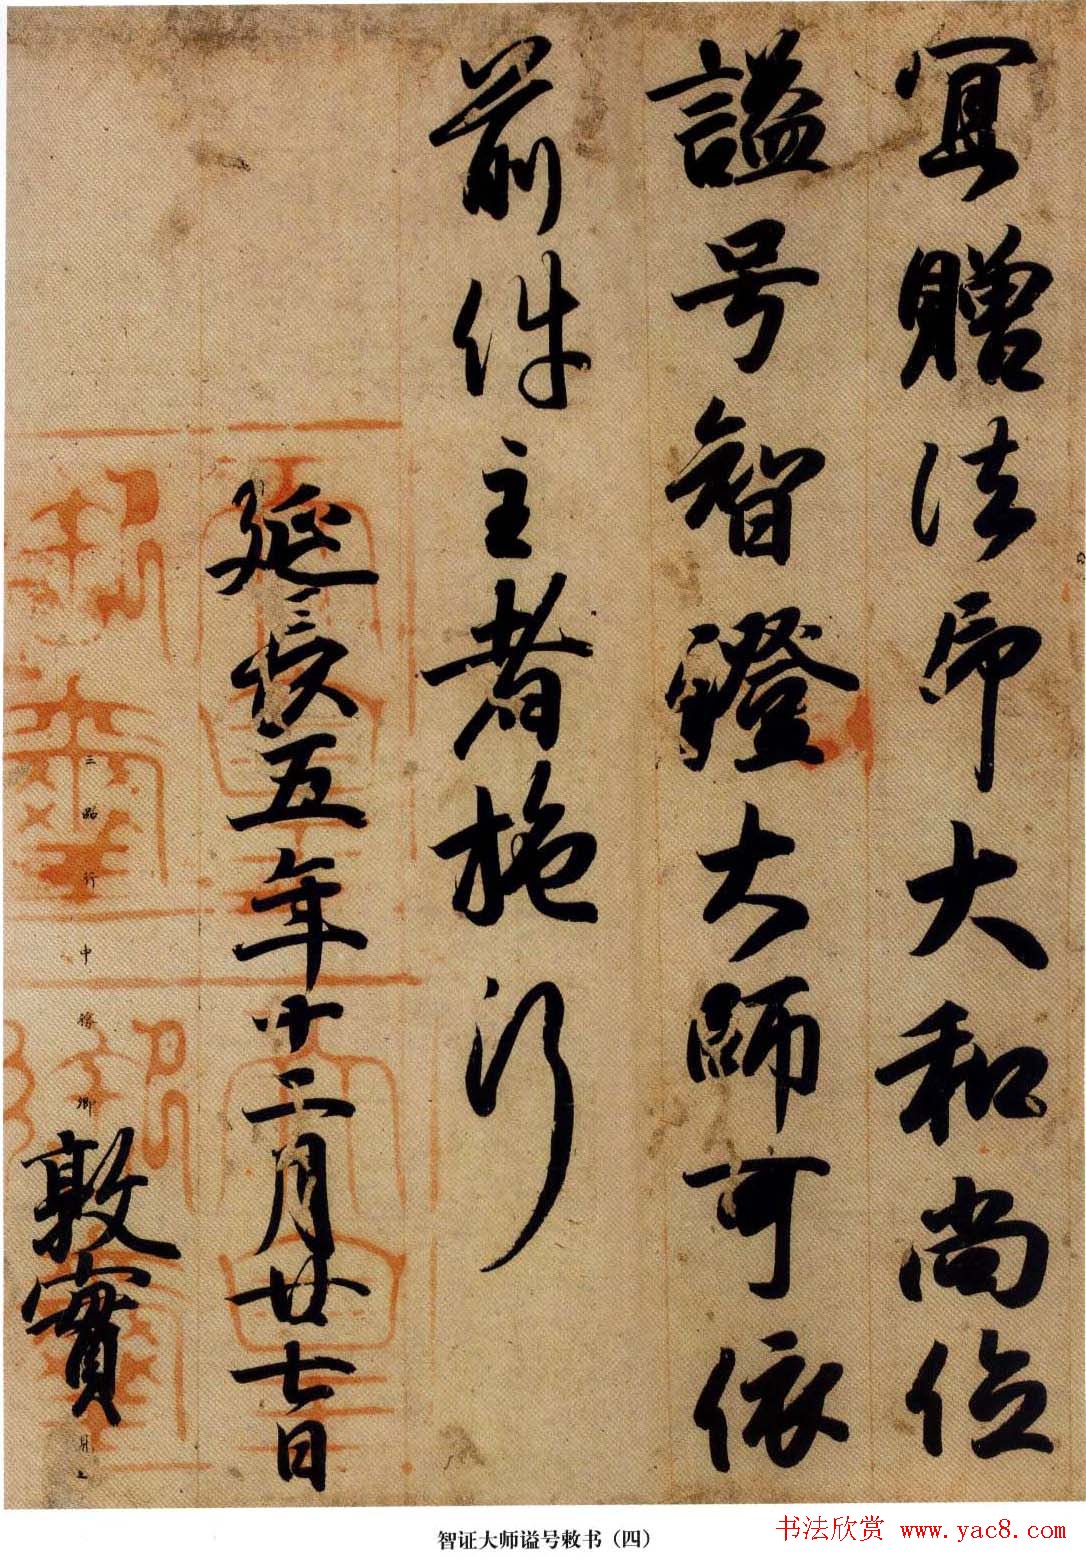 冝贈法印大和尚位
謚号智證大師可依
前件主者施行
延長五年十二月廿七日
三品行中務卿敦實
智证大师谥号敕书（四）
书法欣赏 www.yac8.com